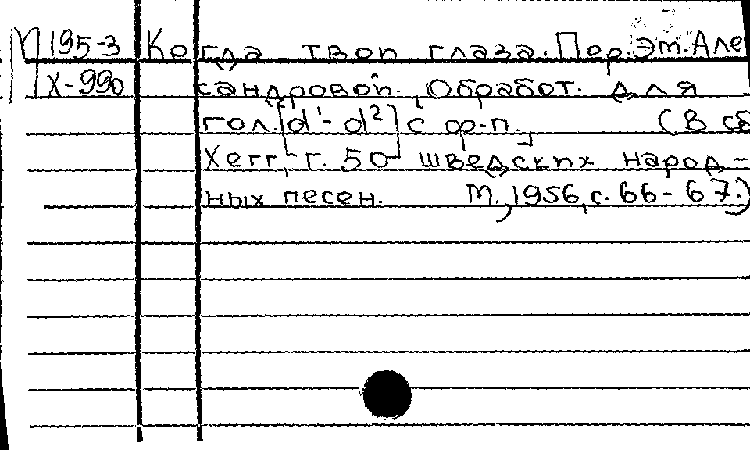 М 195-3 Когда твои глаза. Пер. Эт. Але
Х-990 сандровой. Обработ. для
гол. [d¹-d²] с ф-п. (В сб
Хегг, Г. 50 шведских народ-
ных песен. М., 1956, с. 66-67.)